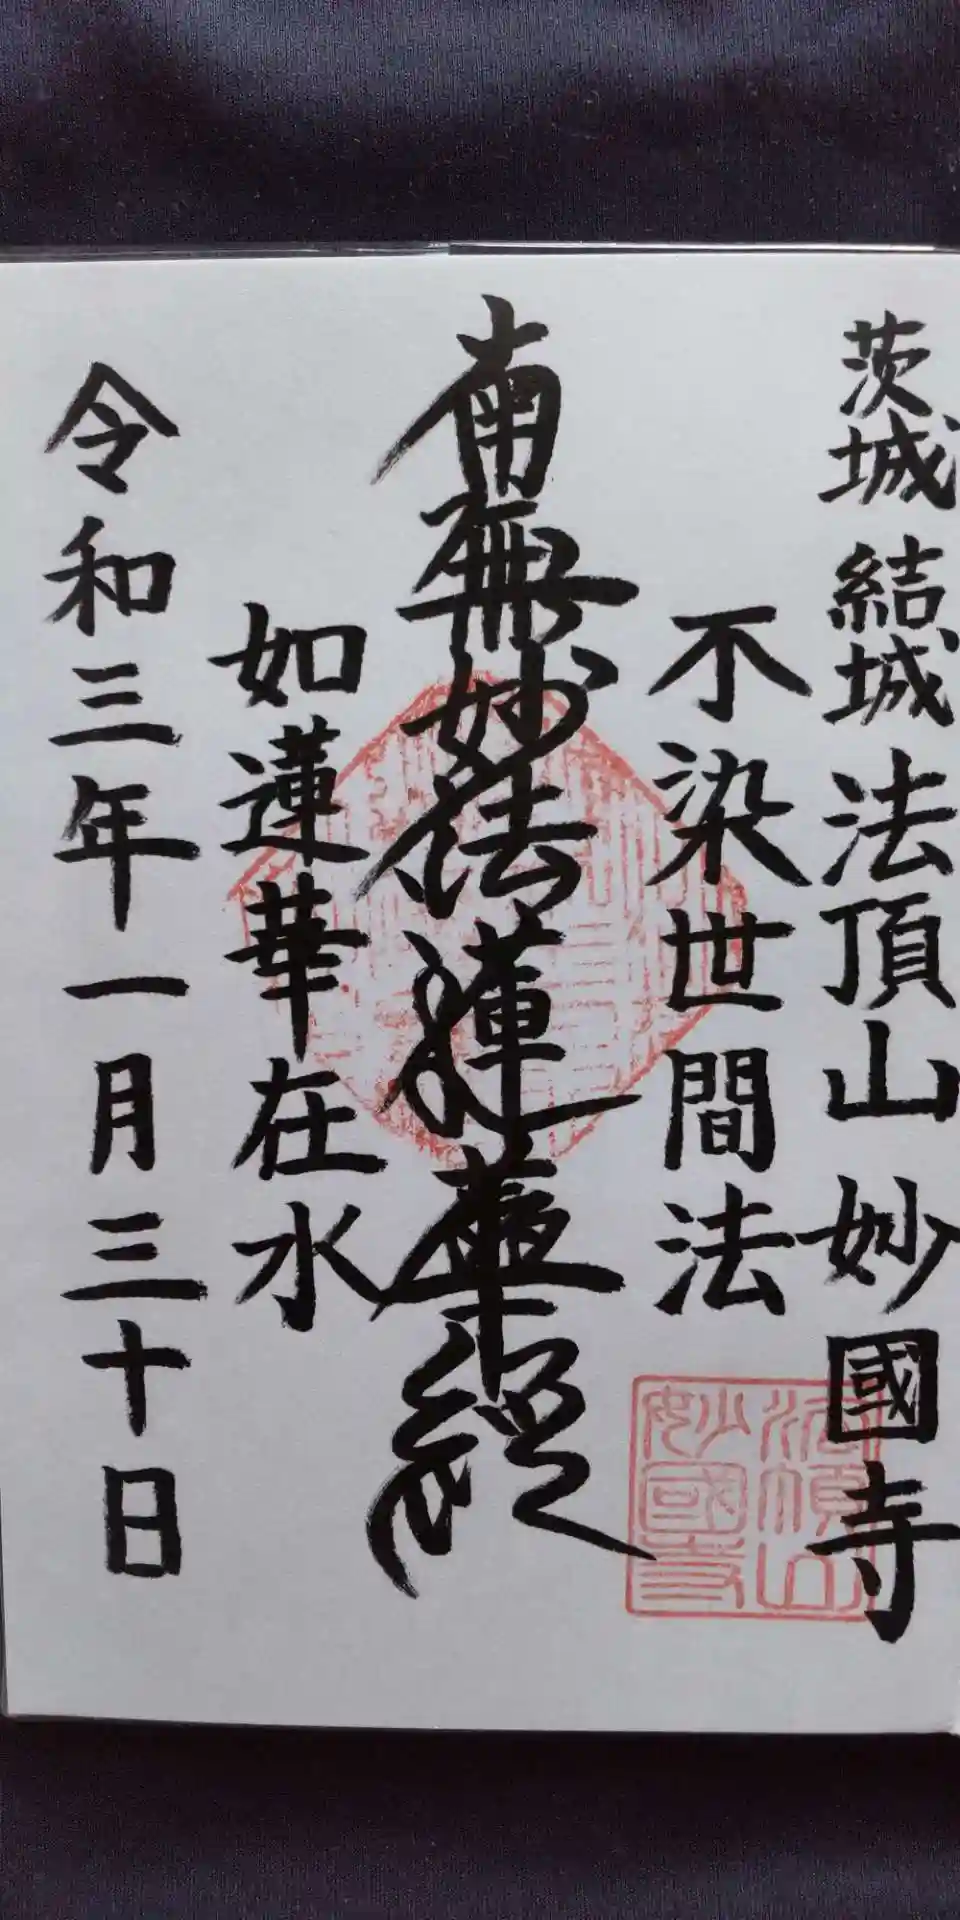 茨城 結城 法頂山 妙國寺
不染世間法
南無妙法蓮華經
如蓮華在水
令和三年一月三十日
法頂山
妙國寺